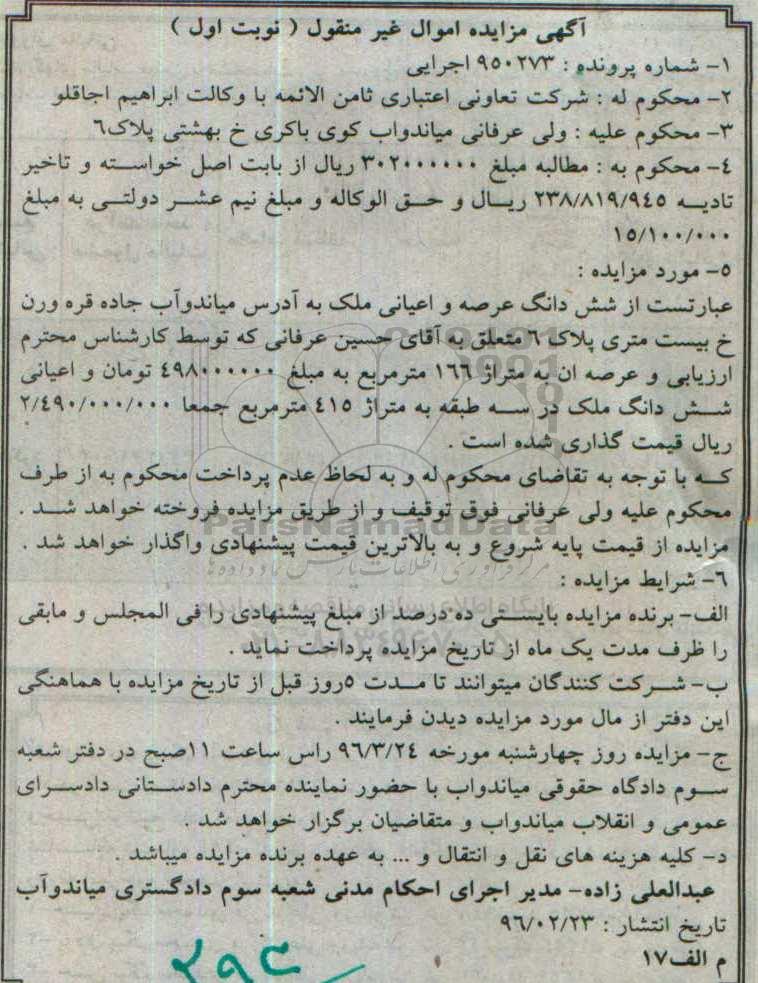 آگهی مزایده اموال غیر منقول ( نوبت اول )
۱- شماره پرونده : ۹۵۰۲۷۳ اجرایی
۲- محکوم له : شرکت تعاونی اعتباری ثامن الائمه با وکالت ابراهیم اجاقلو
۳- محکوم علیه : ولی عرفانی میاندواب کوی باکری خ بهشتی پلاک۶
٤- محکوم به : مطالبه مبلغ ۳۰۲۰۰۰۰۰۰ ریال از بابت اصل خواسته و تاخیر
تادیه ۲۳۸/۸۱۹/۹٤٥ ریال و حق الوکاله و مبلغ نیم عشر دولتی به مبلغ
۱٥/۱۰۰/۰۰۰
٥- مورد مزایده :
عبارتست از شش دانگ عرصه و اعیانی ملک به آدرس میاندوآب جاده قره ورن
خ بیست متری پلاک ٦ متعلق به آقای حسین عرفانی که توسط کارشناس محترم
ارزیابی و عرصه ان به متراژ ۱٦٦ مترمربع به مبلغ ٤۹۸۰۰۰۰۰۰ تومان و اعیانی
شش دانگ ملک در سه طبقه به متراژ ٤۱٥ مترمربع جمعا ۲/٤۹۰/۰۰۰/۰۰۰
ریال قیمت گذاری شده است .
که با توجه به تقاضای محکوم له و به لحاظ عدم پرداخت محکوم به از طرف
محکوم علیه ولی عرفانی فوق توقیف و از طریق مزایده فروخته خواهد شد .
ParsNamadData
مزایده از قیمت پایه شروع و به بالاترین قیمت پیشنهادی واگذار خواهد شد .
٦- شرایط مزایده :
الف- برنده مزایده بایستی ده درصد از مبلغ پیشنهادی را فی المجلس و مابقی
را ظرف مدت یک ماه از تاریخ مزایده پرداخت نماید .
ب- شرکت کنندگان میتوانند تا مدت ٥روز قبل از تاریخ مزایده با هماهنگی
این دفتر از مال مورد مزایده دیدن فرمایند .
ج- مزایده روز چهارشنبه مورخه ۹٦/۳/۲٤ راس ساعت ۱۱صبح در دفتر شعبه
سوم دادگاه حقوقی میاندواب با حضور نماینده محترم دادستانی دادسرای
عمومی و انقلاب میاندواب و متقاضیان برگزار خواهد شد .
د- کلیه هزینه های نقل و انتقال و ... به عهده برنده مزایده میباشد .
عبدالعلی زاده- مدیر اجرای احکام مدنی شعبه سوم دادگستری میاندوآب
تاریخ انتشار : ۹٦/۰۲/۲۳
م الف۱۷